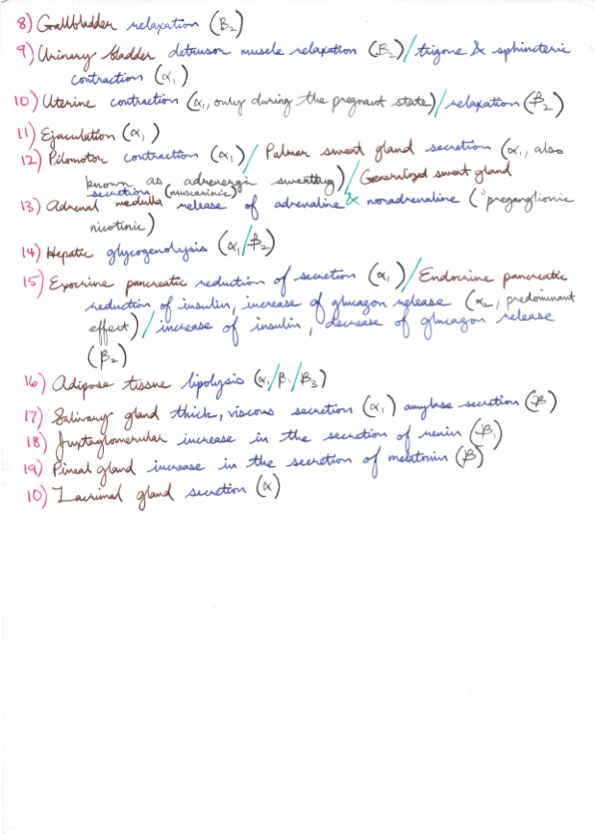 8) Gallbladder relaxation (β₂)
9) Urinary bladder detrusor muscle relaxation (β₂)/trigone & sphincteric
contraction (α₁)
10) Uterine contraction (α₁, only during the pregnant state)/relaxation (β₂)
11) Ejaculation (α₁)
12) Pilomotor contraction (α₁)/Palmar sweat gland secretion (α₁, also
known as adrenergic sweating)/Generalized sweat gland
secretion (muscarinic)
13) Adrenal medulla release of adrenaline & noradrenaline (preganglionic
nicotinic)
14) Hepatic glycogenolysis (α₁/β₂)
15) Exocrine pancreatic reduction of secretion (α₁)/Endocrine pancreatic
reduction of insulin, increase of glucagon release (α₂, predominant
effect)/increase of insulin, decrease of glucagon release
(β₂)
16) Adipose tissue lipolysis (α₁/β₁/β₃)
17) Salivary gland thick, viscous secretion (α₁) amylase secretion (β)
18) Juxtaglomerular increase in the secretion of renin (β₁)
19) Pineal gland increase in the secretion of melatonin (β)
10) Lacrimal gland secretion (α)